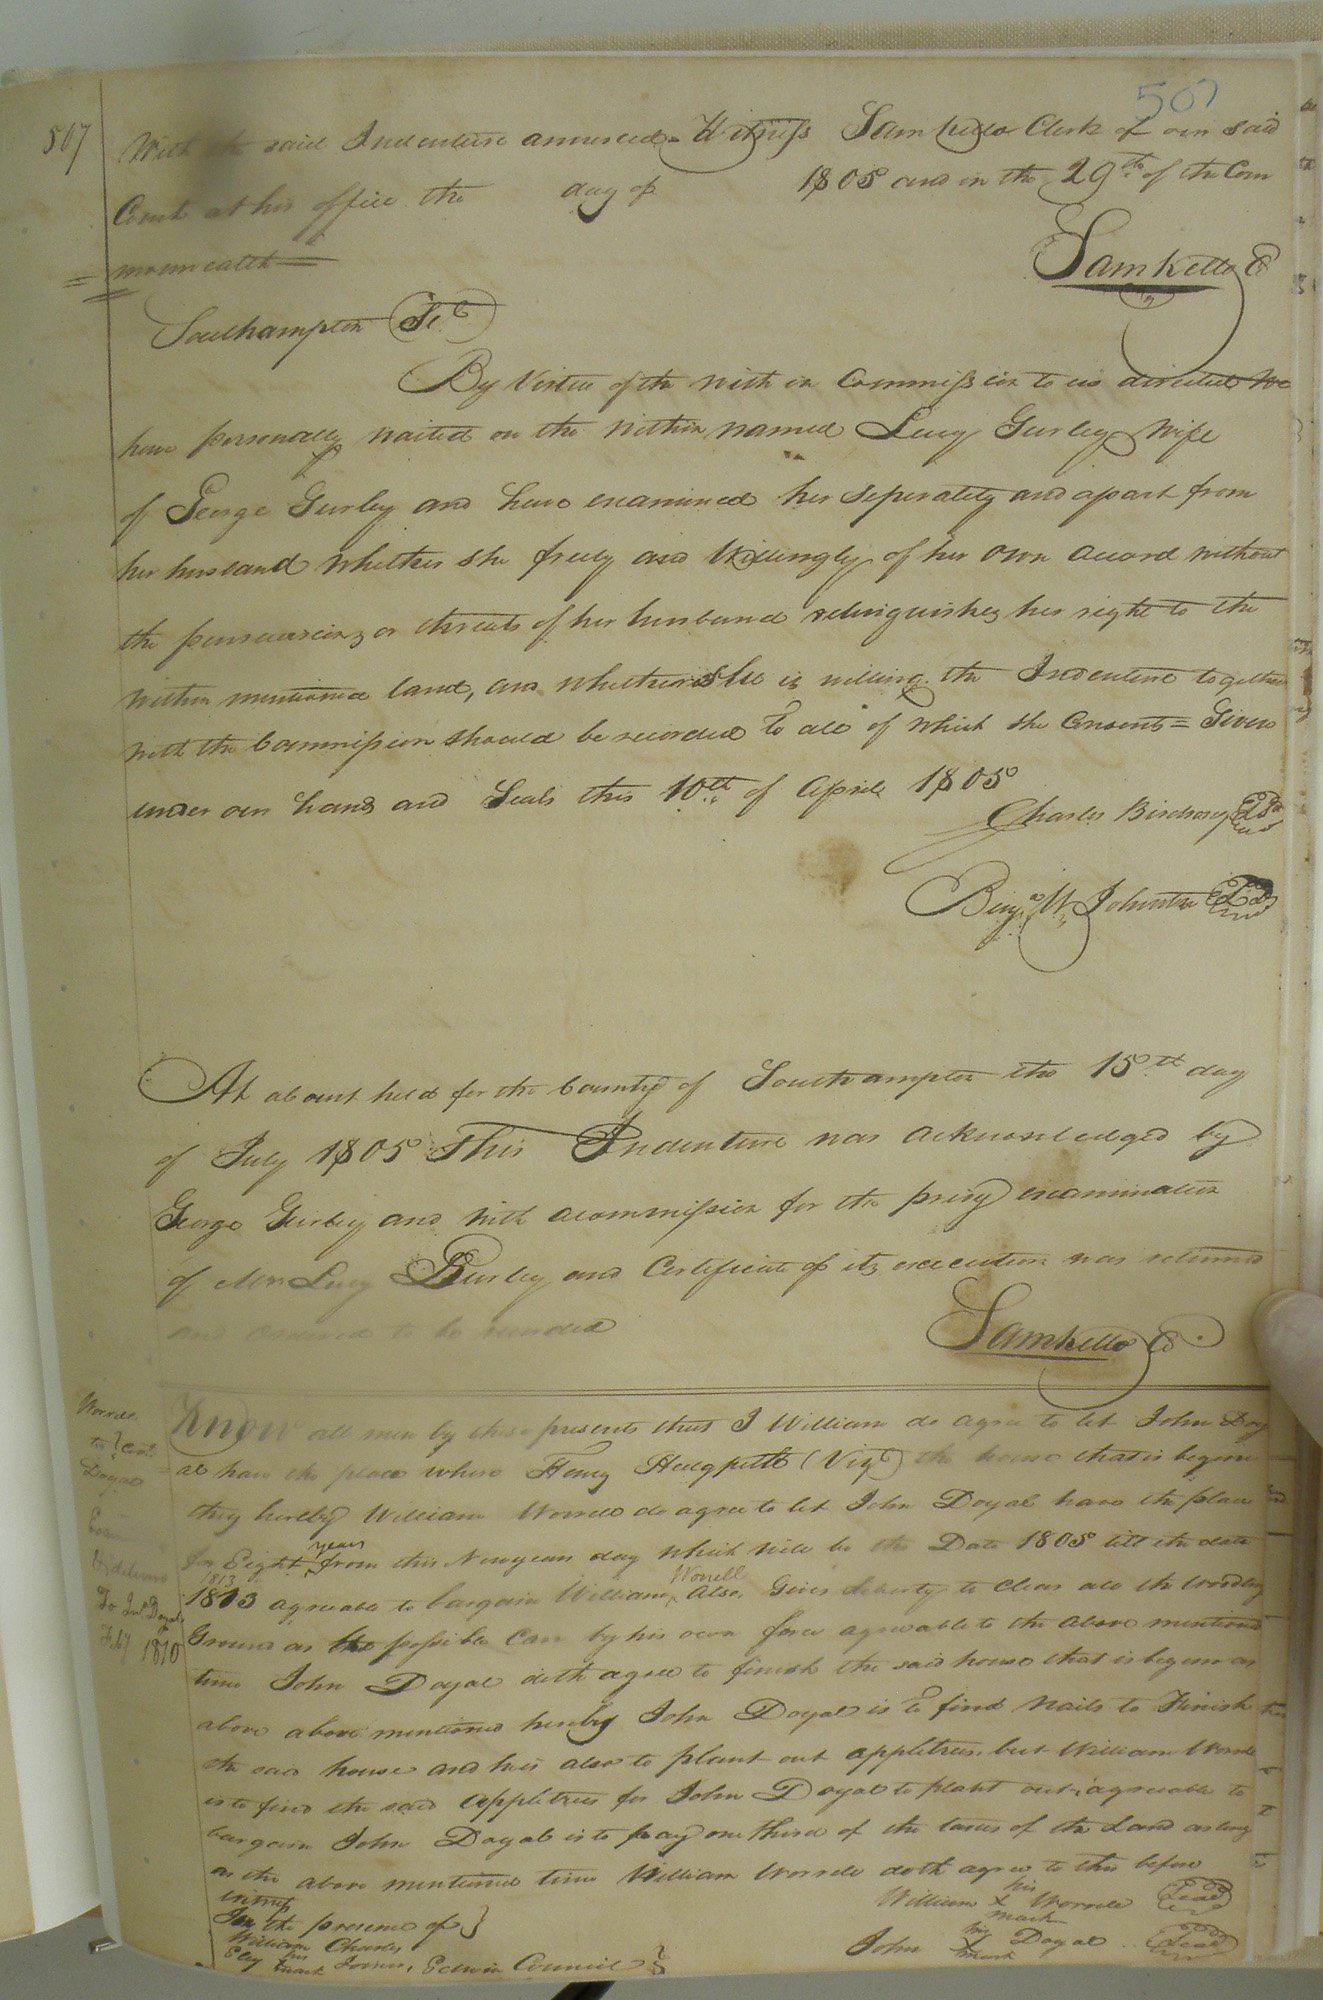 507
507
With the said Indenture annexed = Witness Samkello Clerk of our said
Court at his office the day of 1805 and in the 29th of the Com
monwealth
Samkello C
Southampton Sct
By Virtue of the within Commission to us directed We
have personally waited on the within named Lucy Gurley Wife
of George Gurley and have examined her seperately and apart from
her husband whether she freely and Willingly of her own accord without
the persuasions or threats of her husband relinquishes her right to the
within mentioned land, and whether She is willing the Indenture together
with the Commission should be recorded To all of which she Consents = Given
under our hands and Seals this 10th of April 1805
Charles Birdsong
Benja W Johnston
At a Court held for the County of Southampton the 15th day
of July 1805 This Indenture was acknowledged by
George Gurley and with a commission for the privy examination
of Mrs Lucy Gurley and Certificate of its execution was returned
and ordered to be recorded
Samkello C
Worrell
to } Cont.
Doyal
To Jno Doyal
Feby 1810
Know all men by these presents that I William do agree to let John Doy
al have the place where Henry Hedgpeth (Viz) the house that is begun
they hereby William Worrell do agree to let John Doyal have the place
for Eight years from this Newyears day which will be the Date 1805 till the date
1813
1813 agreable to bargain William Worrell also, Gives liberty to clear all the Woodley
Ground as possible Can by his own force agreeable to the above mentioned
time John Doyal doth agree to finish the said house that is begun as
above above mentioned hereby John Doyal is to find nails to Finish
the said house and he is also to plant out appletrees, but William Worrell
is to find the said appletrees for John Doyal to plant out, agreeable to
bargain John Doyal is to pay one third of the taxes of the Land as long
as the above mentioned time William Worrell doth agree to this before
witness
In the presence of }
William Charles
Eley his mark Joiner, Edwin Council
William his X mark Worrell Seal
John his X mark Doyal Seal